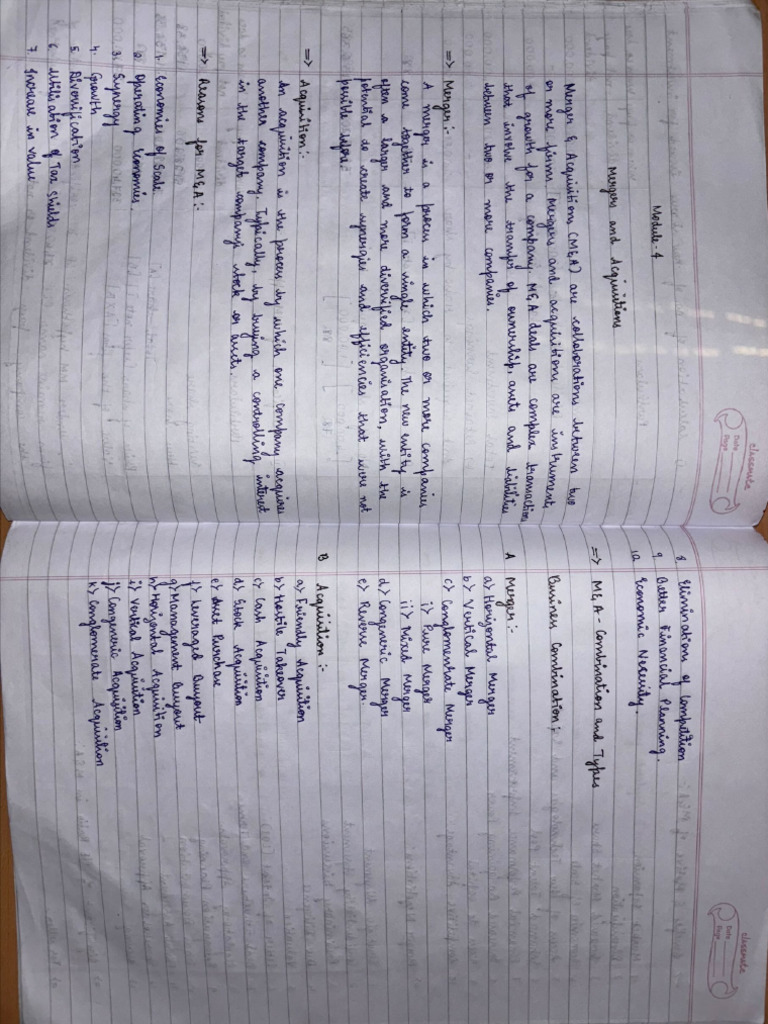 classmate
Date
Page
Module-4
Mergers and Acquisitions
Merger & Acquisitions (M&A) are collaborations between two
or more firms. Mergers and acquisitions are instruments
of growth for a company. M&A deals are complex transaction
that involve the transfer of ownership, assets and liabilities
between two or more companies.
=> Merger:-
A merger is a process in which two or more companies
come together to form a single entity. The new entity is
often a larger and more diversified organisation, with the
potential to create synergies and efficiencies that were not
possible before.
=> Acquisition:-
An acquisition is the process by which one company acquires
another company. Typically, by buying a controlling interest
in the target company's stock or assets.
=> Reasons for M&A:-
1. Economies of Scale
2. Operating Economies.
3. Synergy
4. Growth
5. Diversification
6. Utilisation of Tax Shields
7. Increase in value
classmate
Date
Page
8. Elimination of Competition
9. Better Financial Planning.
10. Economic Necessity.
=> M&A - Combination and Types
Business Combination:
A Merger:-
a) Horizontal Merger
b) Vertical Merger
c) Conglomerate Merger
i) Pure Merger
ii) Mixed Merger
d) Congeneric Merger
e) Reverse Merger
B Acquisition:-
a) Friendly Acquisition
b) Hostile Takeover
c) Cash Acquisition
d) Stock Acquisition
e) Asset Purchase
f) Leveraged Buyout
g) Management Buyout
h) Horizontal Acquisition
i) Vertical Acquisition
j) Congeneric Acquisition
k) Conglomerate Acquisition